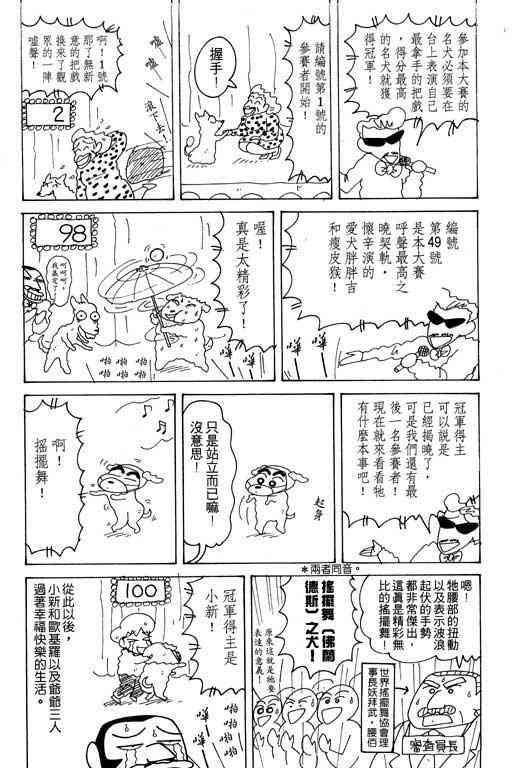 參加本大賽的
名犬必須要在
台上表演自己
最拿手的把戲
，得分最高
的名犬就獲
得冠軍！
請編號第1號的
參賽者開始！
握手！
啊！1號
那了無新
意的把戲
換來了觀
眾的一陣
噓聲！
噓
噓
滾下去！
2
編號
第49號
是本大賽
呼聲最高之
曉契軌，
懷辛演的
愛犬胖胖吉
和瘦皮猴！
喔！
真是太精彩了！
98
呵呵呵！
我贏定了！
啪
啪
啪
啪
嘩
嘩
冠軍得主
可以說是
已經揭曉了，
可是我們還有最
後一名參賽者！
現在就來看看牠
有什麼本事吧！
只是站立而已嘛！
沒意思！
起身
啊！
搖擺舞！
＊兩者同音。
嗯！
牠腰部的扭動
以及表示波浪
起伏的手勢
都非常傑出，
這真是精彩無
比的搖擺舞！
世界搖擺舞協會理
事長妖拜武．腰佰
審查員長
搖擺舞（佛蘭
德斯）之犬！
原來這就是牠要
表達的意義！
冠軍得主是
小新！
100
啪
啪
啪
嘩
嘩
從此以後，
小新和歐基羅以及爺爺三人
過著幸福快樂的生活。